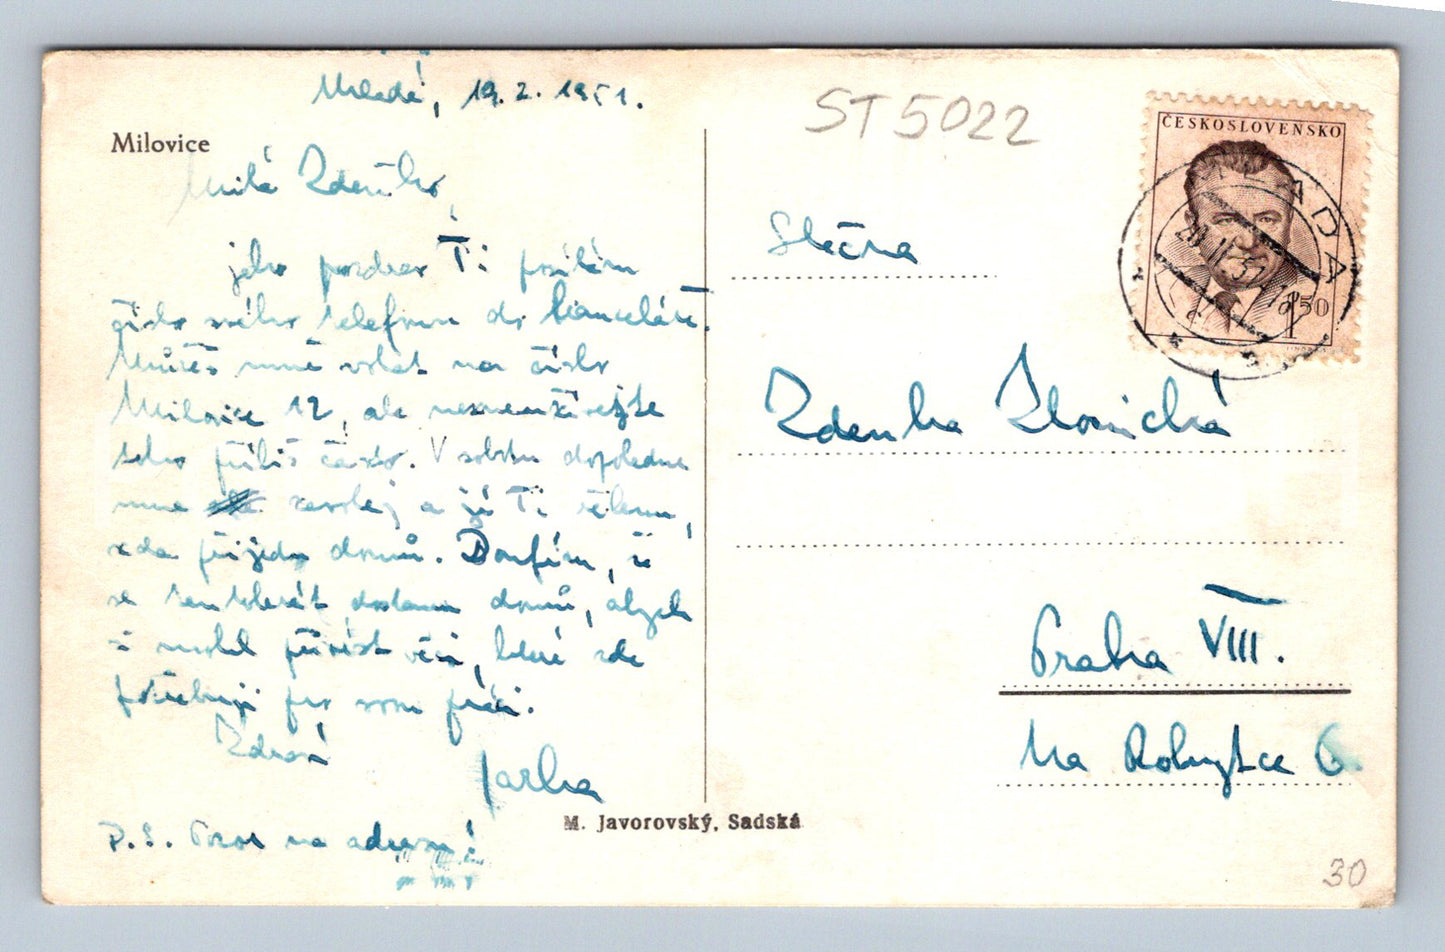 Mladá, 19. 2. 1951.
Milovice
Milá Zdenko,
jako pozdrav Ti posílám
číslo svého telefonu do kanceláře.
Můžeš mně volat na číslo
Milovice 12, ale nesmíš
toho příliš často. V sobotu dopoledne
mne zavolej a já Ti řeknu,
zda přijedu domů. Doufám, že
se tentokrát dostanu domů, abych
si mohl přivést věci, které zde
potřebuji pro svou práci.
Zdraví
Jarka
P.S. Pozor na
ST5022
ČESKOSLOVENSKO
1,50
MLADÁ
Slečna
Zdenka Zlonická
Praha VIII.
Na Rokytce 6.
M. Javorovský, Sadská
30